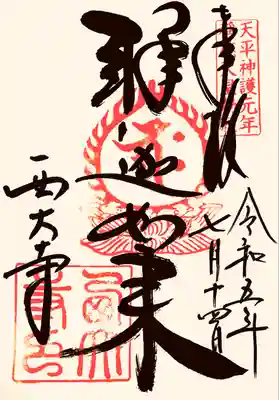 天平神護元年
奉拝
令和五年
七月十四日
釈迦如来
西大寺